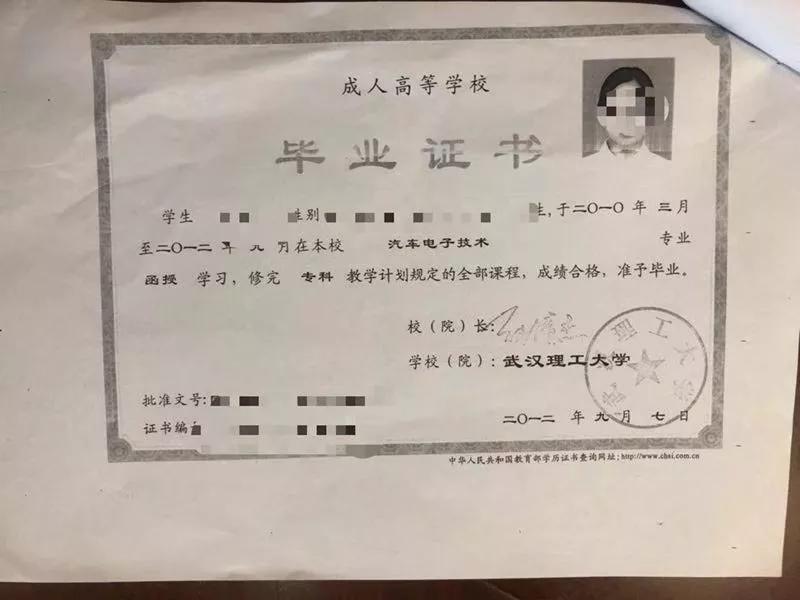 成人高等学校
毕业证书
学生 性别 生,于二〇一〇年 三月
至二〇一二年 九 月在本校 汽车电子技术 专业
函授 学习,修完 专科 教学计划规定的全部课程,成绩合格,准予毕业。
校(院)长:
学校(院):武汉理工大学
理工大学
批准文号:
证书编
二〇一二 年 九 月 七 日
中华人民共和国教育部学历证书查询网址:http://www.chsi.com.cn